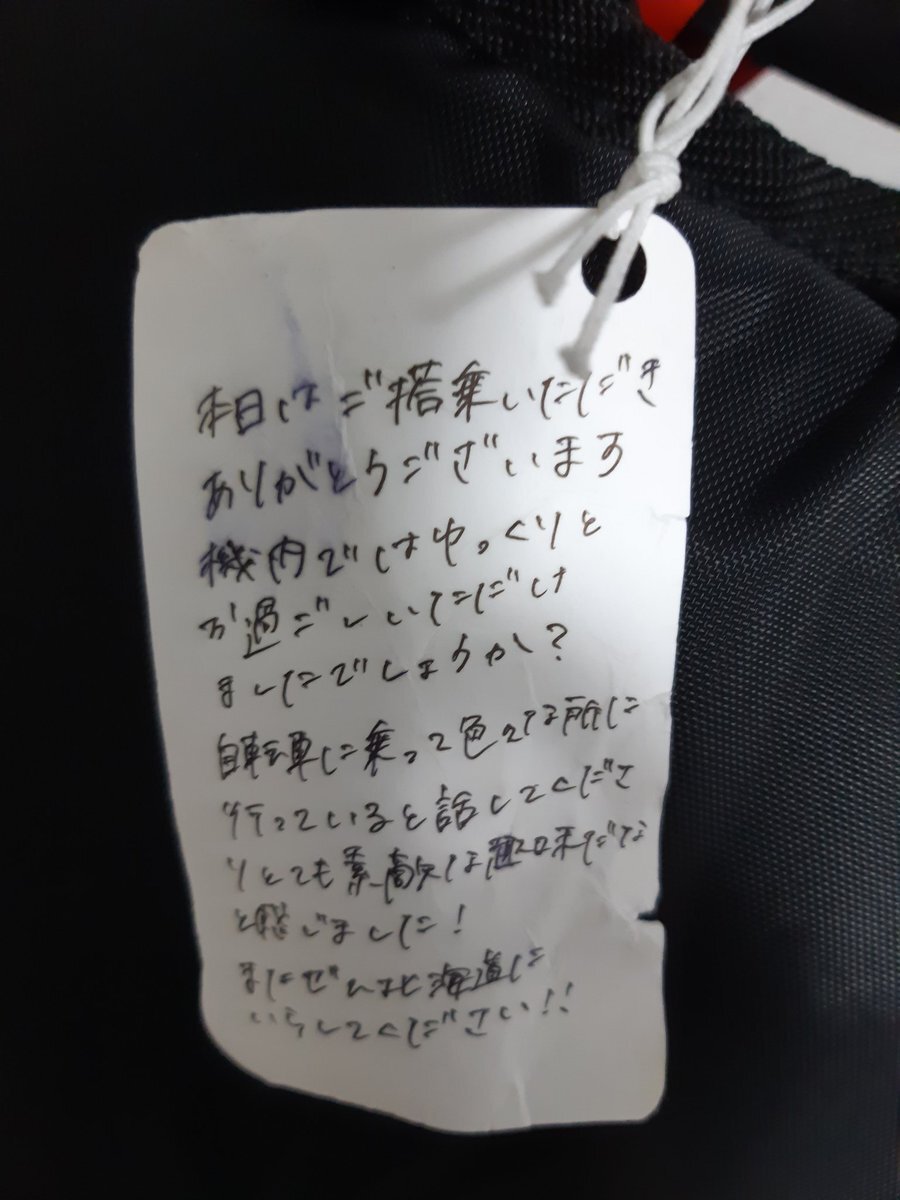 本日はご搭乗いただき
ありがとうございます
機内ではゆっくりと
お過ごしいただけ
ましたでしょうか?
自転車に乗って色々な所に
行っていると話してくださ
りとても素敵な趣味だな
と感じました!
またぜひ北海道に
いらしてください!!